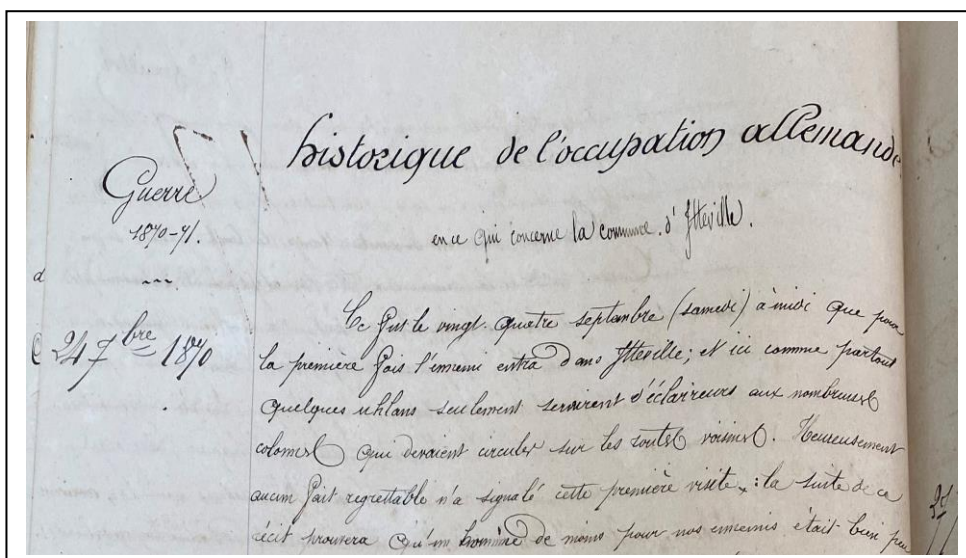 historique de l'occupation allemande
Guerre
1870-71.
en ce qui concerne la commune d'Itteville.
Ce fut le vingt-quatre septembre (samedi) à midi que pour
24 7bre 1870
la première fois l'ennemi entra dans Itteville; et ici comme partout
quelques uhlans seulement servirent d'éclaireurs aux nombreuses
colonnes qui devaient circuler sur les routes voisines. Heureusement
aucun fait regrettable n'a signalé cette première visite : la suite de ce
récit prouvera qu'un homme de moins pour nos ennemis était bien peu